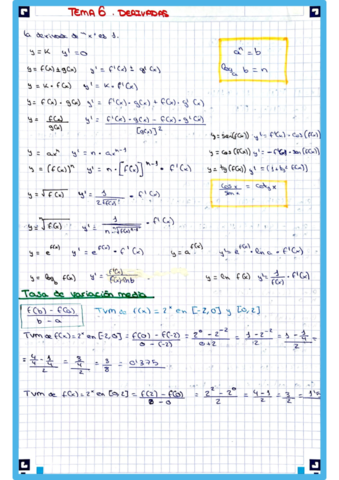 TEMA 6. DERIVADAS
La derivada de "x" es 1.
y = K   y' = 0
aⁿ = b
logₐ b = n
y = f(x) ± g(x)   y' = f'(x) ± g'(x)
y = K · f(x)   y' = K · f'(x)
y = f(x) · g(x)   y' = f'(x) · g(x) + f(x) · g'(x)
y = f(x)/g(x)   y' = (f'(x) · g(x) - f(x) · g'(x))/[g(x)]²
y = sen(f(x))   y' = f'(x) · cos(f(x))
y = axⁿ   y' = n · axⁿ⁻¹
y = cos(f(x))   y' = -f'(x) · sen(f(x))
y = [f(x)]ⁿ   y' = n · [f(x)]ⁿ⁻¹ · f'(x)
y = tg(f(x))   y' = (1 + tg² f(x))
y = √f(x)   y' = 1/(2√f(x)) · f'(x)
cos x/sen x = cotg x
y = ⁿ√f(x)   y' = 1/(n · ⁿ√f(x)ⁿ⁻¹) · f'(x)
y = e^f(x)   y' = e^f(x) · f'(x)   y = a^f(x)   y' = a^f(x) · ln a · f'(x)
y = logb f(x)   y' = f'(x)/(f(x) ln b)   y = ln f(x)   y' = 1/f(x) · f'(x)
Tasa de variación media
(f(b) - f(a))/(b - a)   TVM de f(x) = 2ˣ en [-2,0] y [0,2]
TVM de f(x) = 2ˣ en [-2,0] = (f(0) - f(-2))/(0 - (-2)) = (2⁰ - 2⁻²)/(0+2) = (1 - 2⁻²)/2 = (1 - 1/4)/2 =
= (4/4 - 1/4)/2 = (3/4)/2 = 3/8 = 0'375
TVM de f(x) = 2ˣ en [0,2] = (f(2) - f(0))/(2 - 0) = (2² - 2⁰)/2 = (4 - 1)/2 = 3/2 =